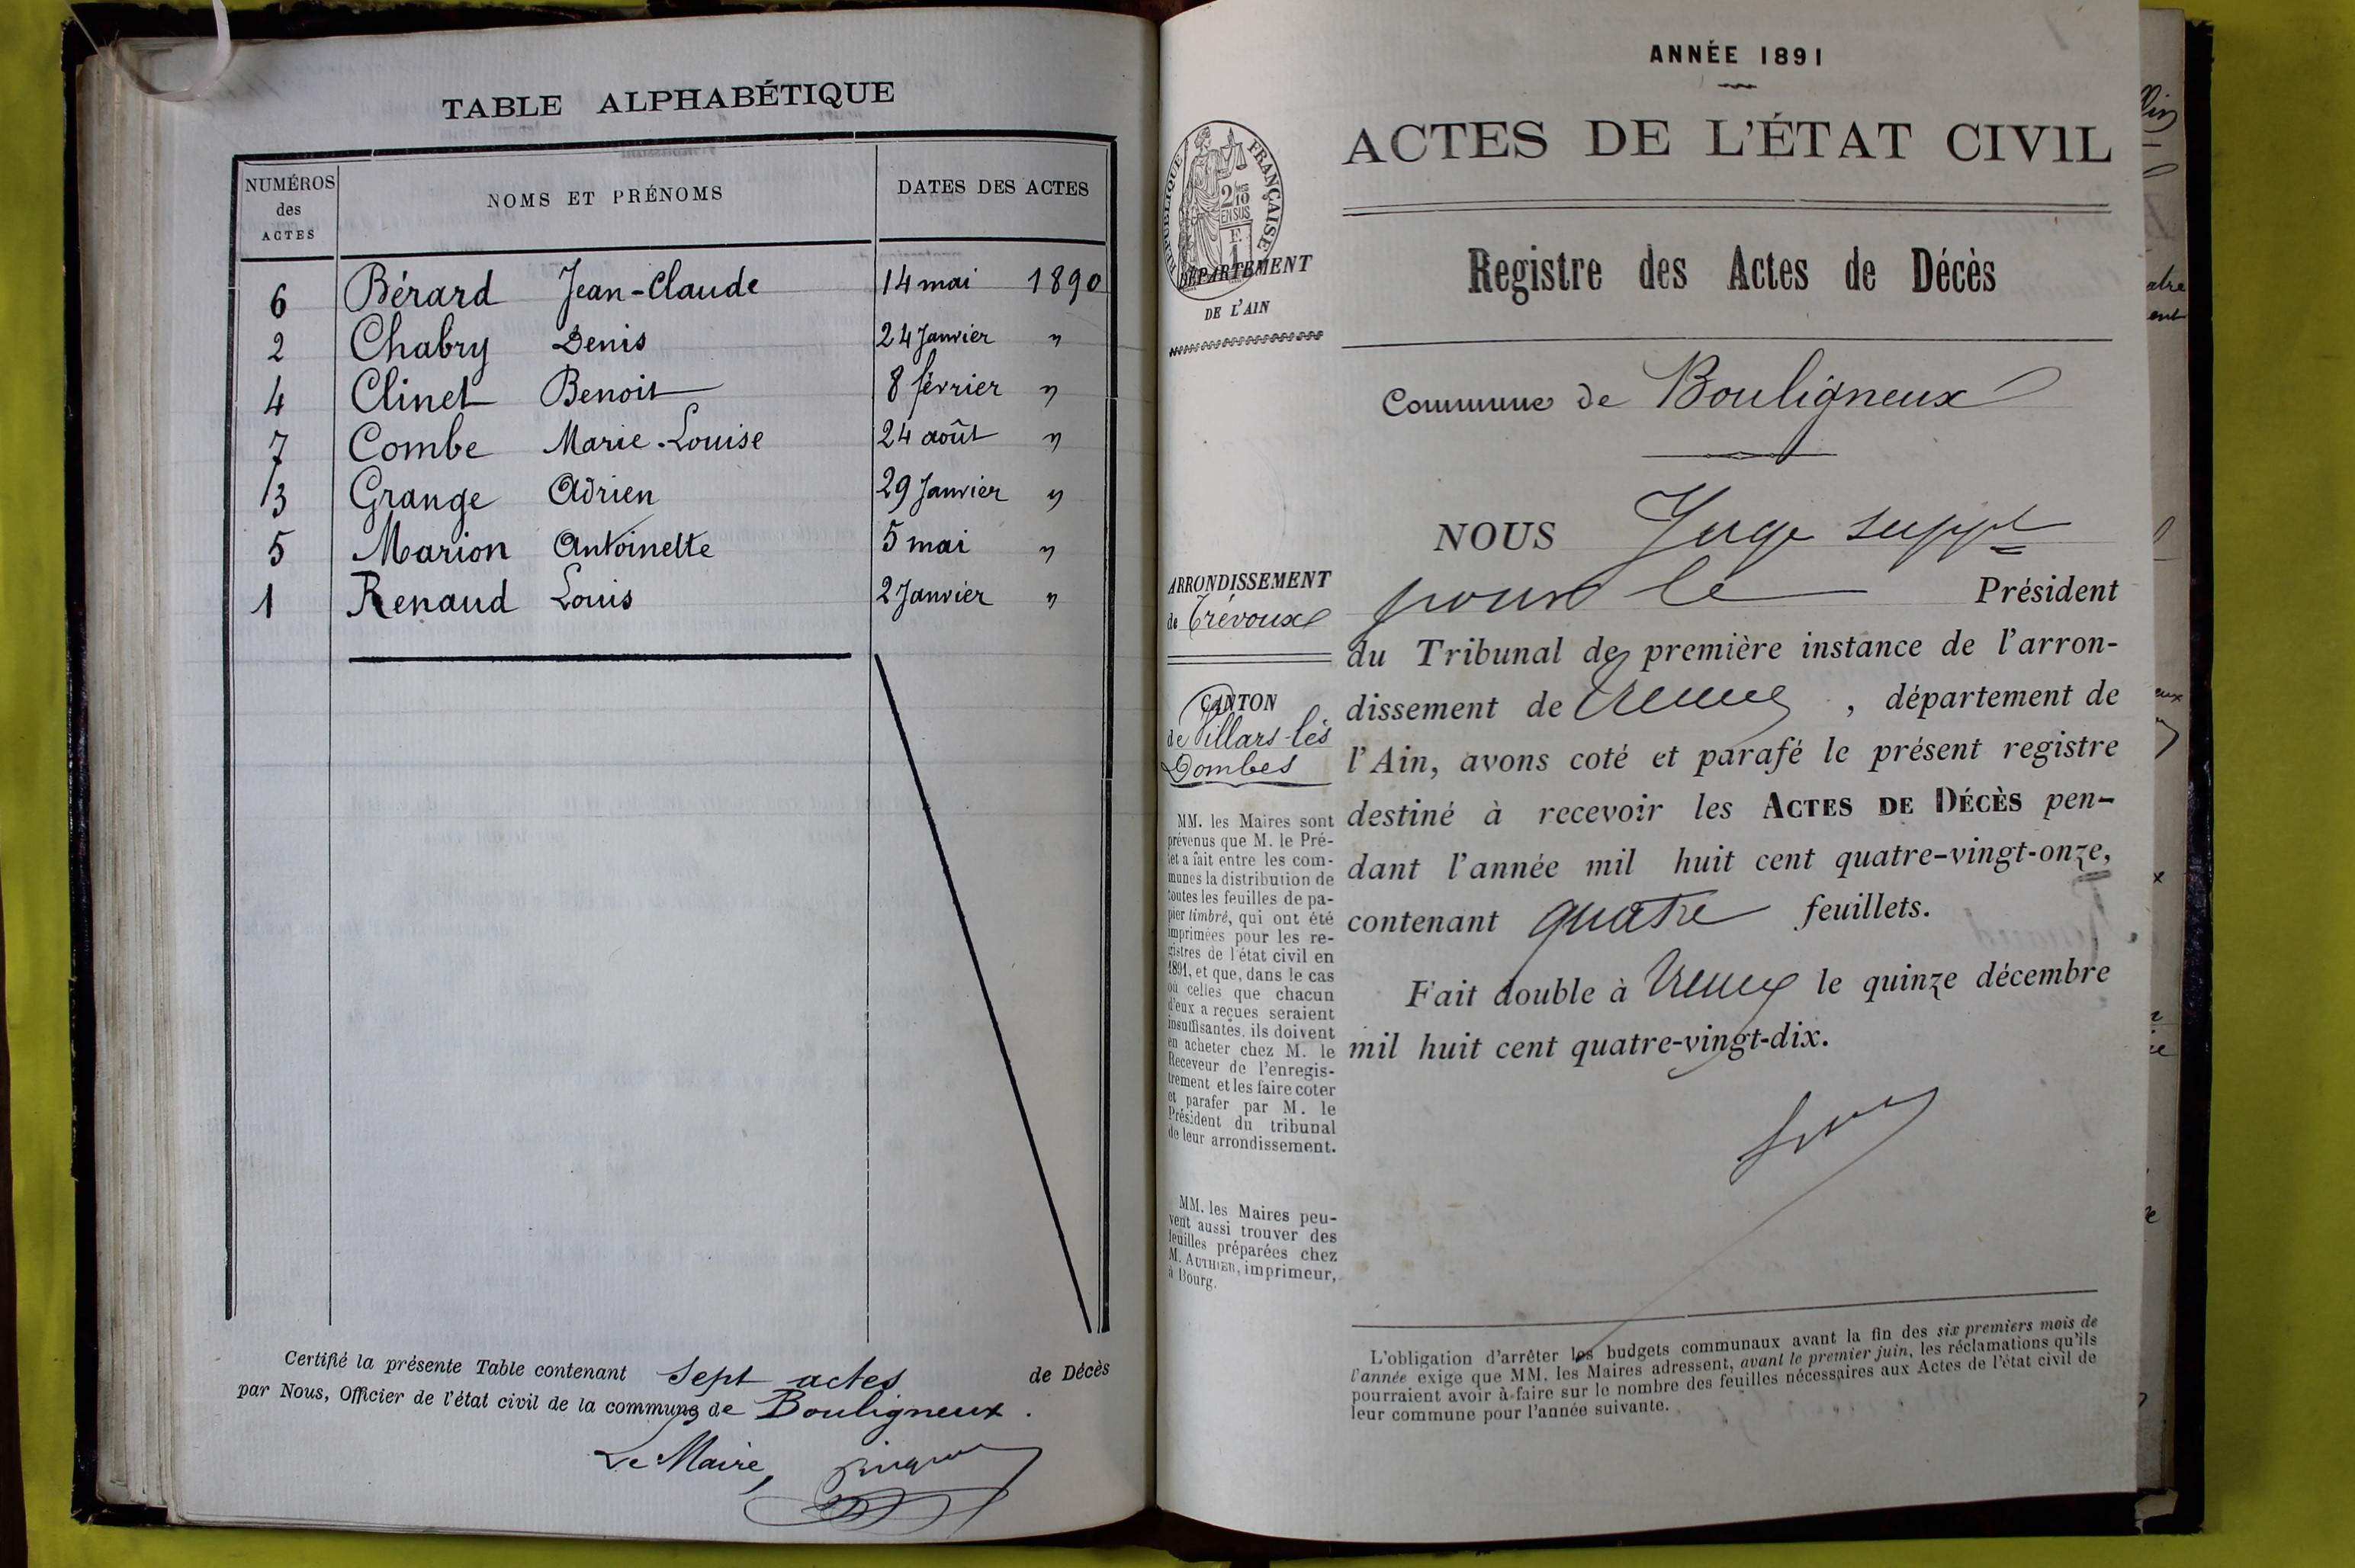 TABLE ALPHABÉTIQUE
NUMÉROS des ACTES NOMS ET PRÉNOMS DATES DES ACTES
6 Bérard Jean-Claude 14 mai 1890
2 Chabry Denis 24 Janvier "
4 Clinet Benoit 8 février "
7 Combe Marie-Louise 24 août "
3 Grange Adrien 29 Janvier "
5 Marion Antoinette 5 mai "
1 Renaud Louis 2 Janvier "
Certifié la présente Table contenant Sept actes de Décès
par Nous, Officier de l'état civil de la commune de Bouligneux.
Le Maire,
ANNÉE 1891
ACTES DE L'ÉTAT CIVIL
RÉPUBLIQUE FRANÇAISE
2/10
EN SUS
DÉPARTEMENT
DE L'AIN
Registre des Actes de Décès
Commune de Bouligneux
ARRONDISSEMENT
de Trévoux
CANTON
de Villars-les
Dombes
MM. les Maires sont
prévenus que M. le Pré-
fet a fait entre les com-
munes la distribution de
toutes les feuilles de pa-
pier timbré, qui ont été
imprimées pour les re-
gistres de l'état civil en
1891, et que, dans le cas
où celles que chacun
d'eux a reçues seraient
insuffisantes, ils doivent
en acheter chez M. le
Receveur de l'enregis-
trement et les faire coter
et parafer par M. le
Président du tribunal
de leur arrondissement.
MM. les Maires peu-
vent aussi trouver des
feuilles préparées chez
M. AUTHIER, imprimeur,
à Bourg.
NOUS Juge suppt
pour le Président
du Tribunal de première instance de l'arron-
dissement de Trévoux, département de
l'Ain, avons coté et parafé le présent registre
destiné à recevoir les ACTES DE DÉCÈS pen-
dant l'année mil huit cent quatre-vingt-onze,
contenant quatre feuillets.
Fait double à Trévoux le quinze décembre
mil huit cent quatre-vingt-dix.
L'obligation d'arrêter les budgets communaux avant la fin des six premiers mois de
l'année exige que MM. les Maires adressent, avant le premier juin, les réclamations qu'ils
pourraient avoir à faire sur le nombre des feuilles nécessaires aux Actes de l'état civil de
leur commune pour l'année suivante.